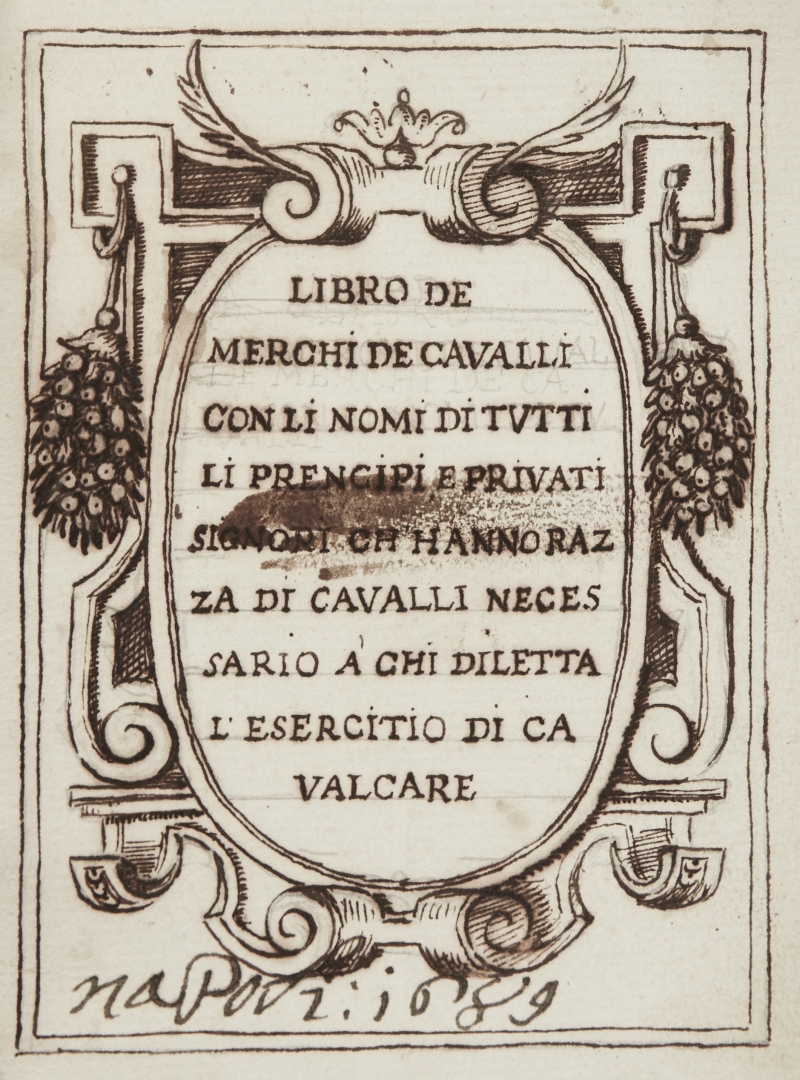 LIBRO DE
MERCHI DE CAVALLI
CON LI NOMI DI TVTTI
LI PRENCIPI E PRIVATI
SIGNORI CH HANNO RAZ
ZA DI CAVALLI NECES
SARIO A' CHI DILETTA
L' ESERCITIO DI CA
VALCARE
naPoli: 1689